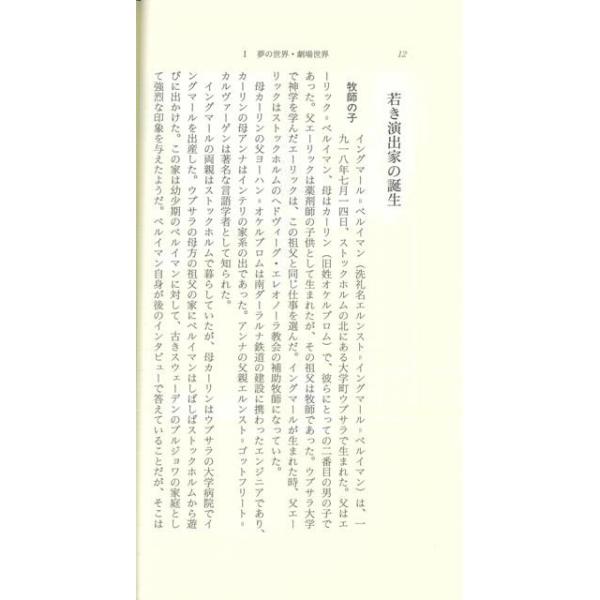 12
1 夢の世界・劇場世界
若き演出家の誕生
牧師の子
イングマール＝ベルイマン（洗礼名エルンスト＝イングマール＝ベルイマン）は、一
九一八年七月一四日、ストックホルムの北にある大学町ウプサラで生まれた。父はエ
ーリック＝ベルイマン、母はカーリン（旧姓オケルブロム）で、彼らにとっての二番目の男の子で
あった。父エーリックは薬剤師の子供として生まれたが、その祖父は牧師であった。ウプサラ大学
で神学を学んだエーリックは、この祖父と同じ仕事を選んだ。イングマールが生まれた時、父エー
リックはストックホルムのヘドヴィーグ・エレオノーラ教会の補助牧師になっていた。
母カーリンの父ヨーハン＝オケルブロムは南ダーラルナ鉄道の建設に携わったエンジニアであり、
カーリンの母アンナはインテリの家系の出であった。アンナの父親エルンスト＝ゴットフリート＝
カルヴァーゲンは著名な言語学者として知られた。
イングマールの両親はストックホルムで暮らしていたが、母カーリンはウプサラの大学病院でイ
ングマールを出産した。ウプサラの母方の祖父の家にベルイマンはしばしばストックホルムから遊
びに出かけた。この家は幼少期のベルイマンに対して、古きスウェーデンのブルジョワの家庭とし
て強烈な印象を与えたようだ。ベルイマン自身が後のインタビューで答えていることだが、そこは